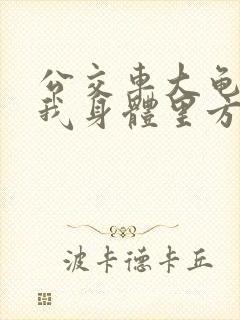 公交車大龟
我身體里方
波卡德卡丘